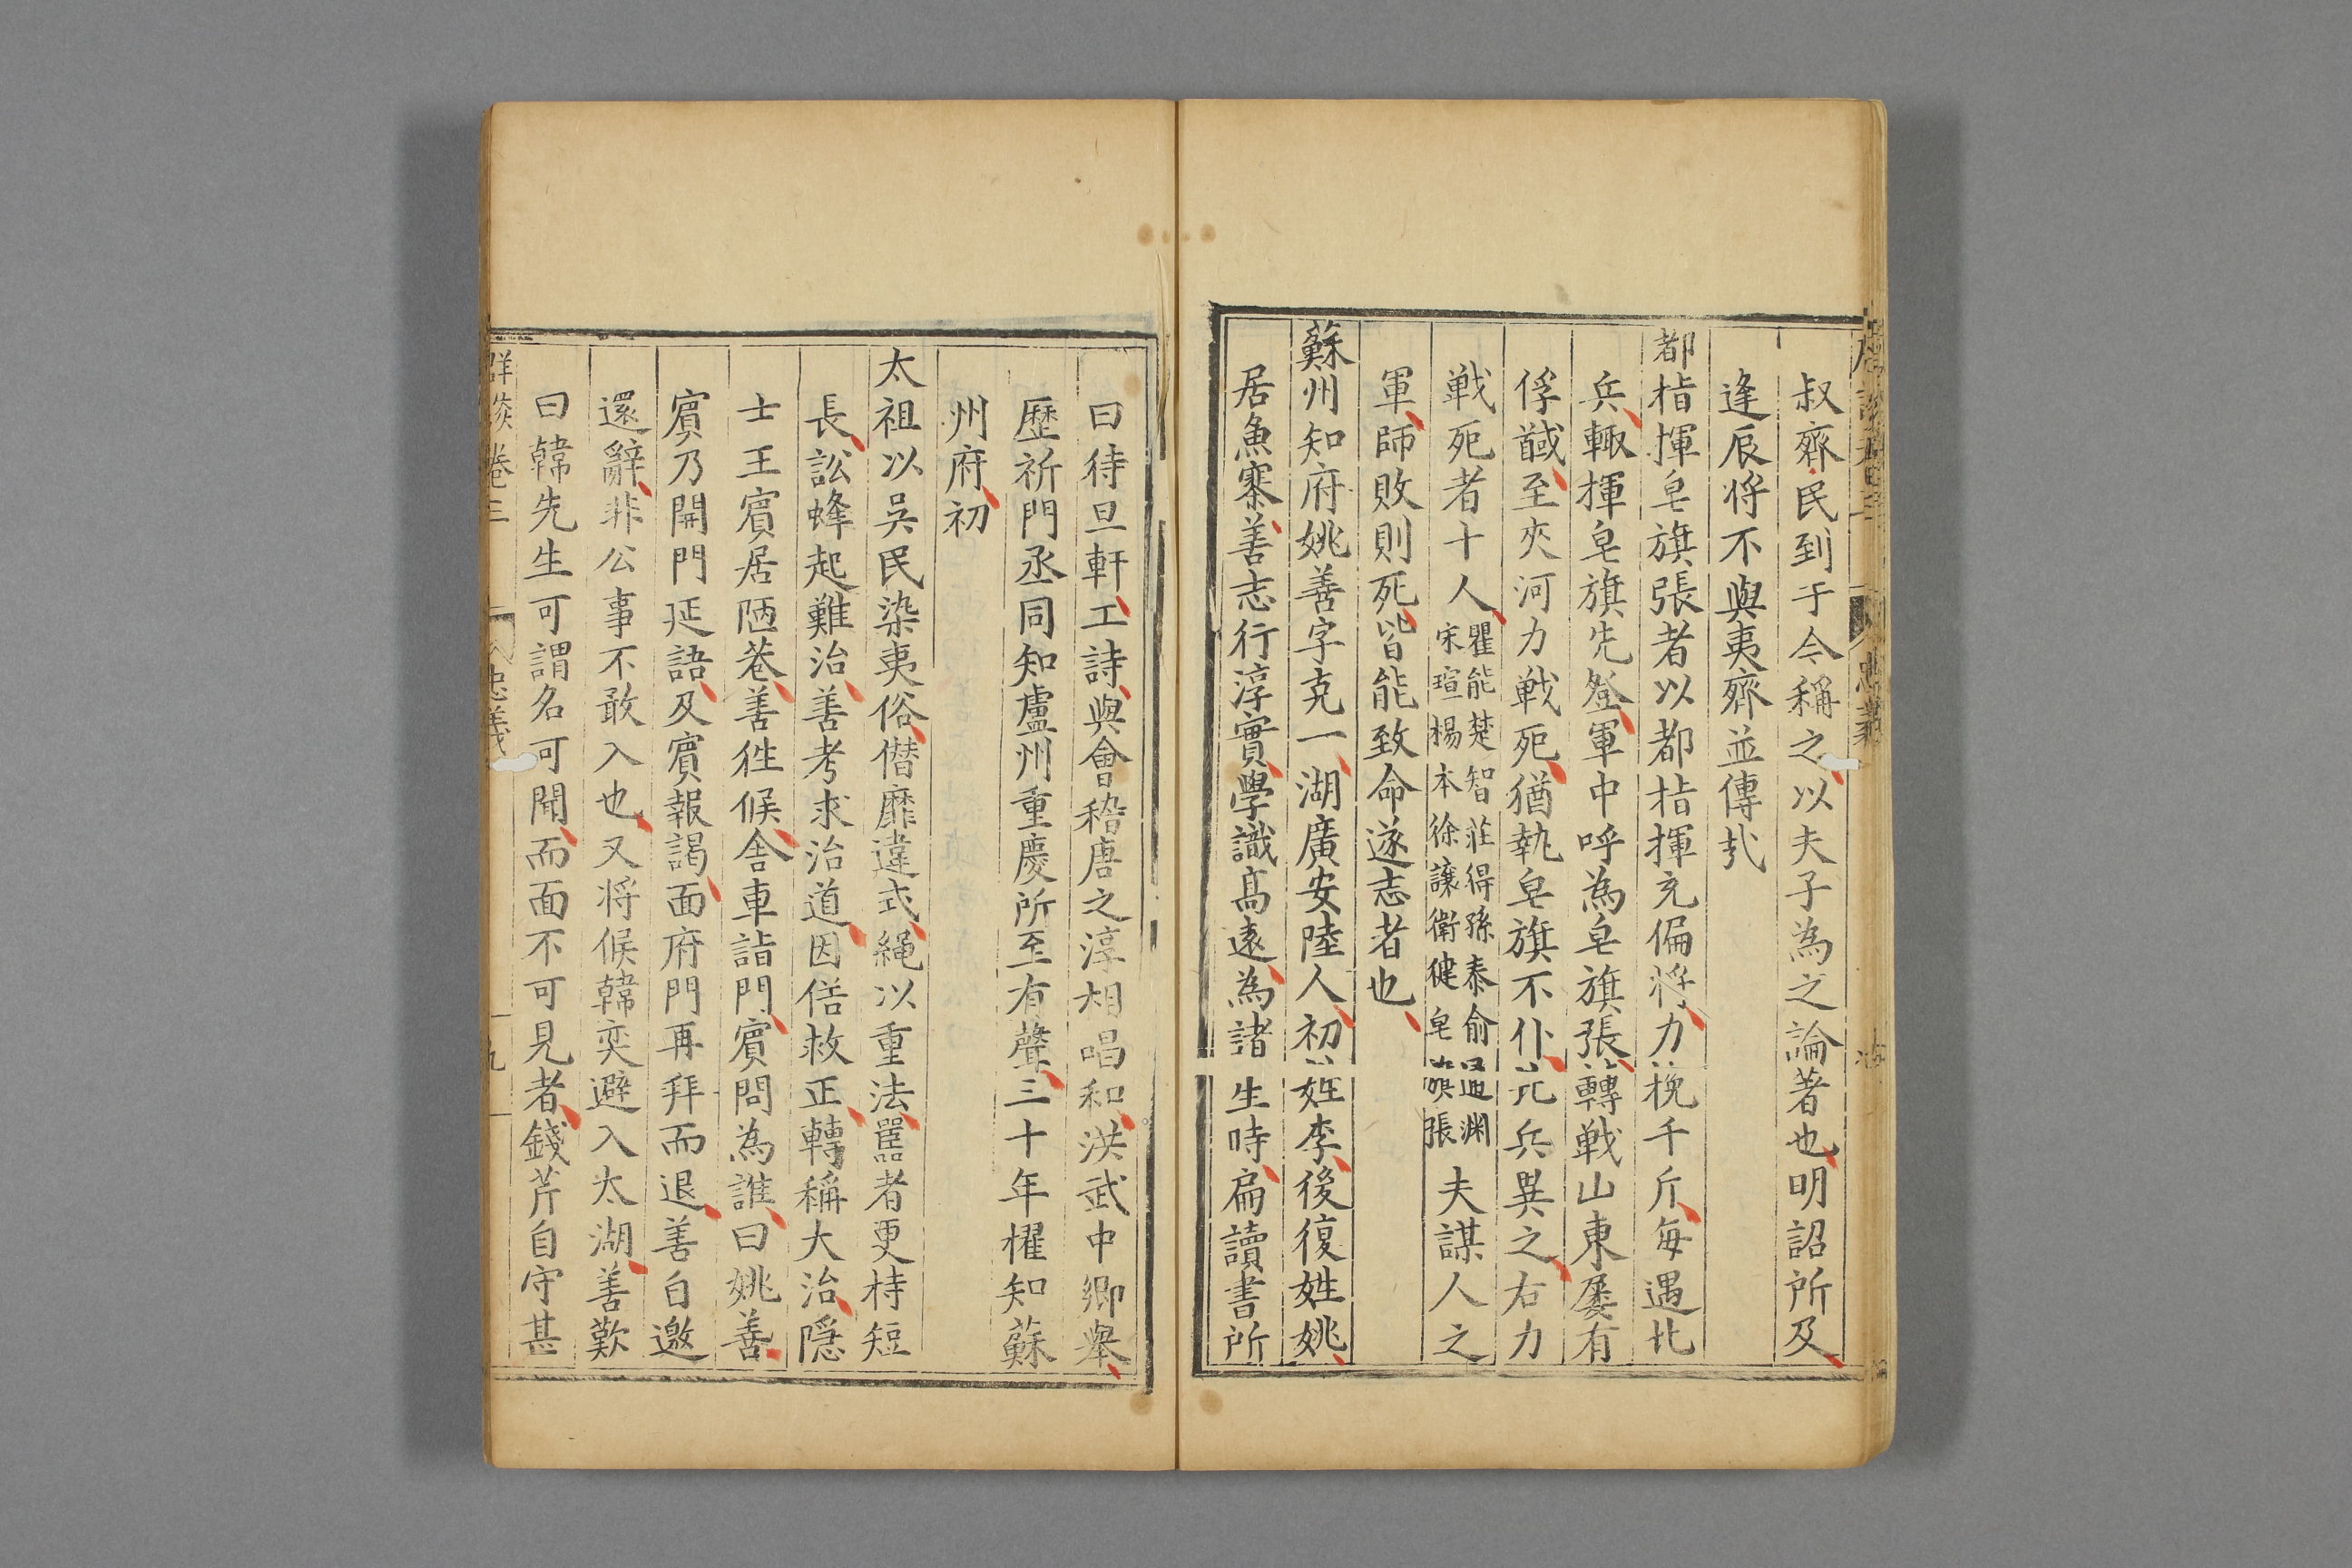 叔齊民到于今稱之以夫子為之論著也明詔所及
逢辰将不與夷齊並傳㢤
都指揮皂旗張者以都指揮充偏将力挽千斤每遇北
兵輙揮皂旗先登軍中呼為皂旗張轉戰山東屡有
俘馘至夾河力戰死猶執皂旗不仆北兵異之右力
戰死者十人瞿能楚智莊得孫泰俞通渊
宋瑄楊本徐讓衛健皂旗張夫謀人之
軍師敗則死皆能致命遂志者也
蘇州知府姚善字克一湖廣安陸人初姓李後復姓姚
居魚寨善志行淳實學識髙遠為諸生時扁讀書所
曰待旦軒工詩與會稽唐之淳相唱和洪武中郷舉
歷祈門丞同知盧州重慶所至有聲三十年櫂知蘇
州府初
太祖以吳民染夷俗僣靡違式繩以重法嚚者更持短
長訟蜂起難治善考求治道因俗救正轉稱大治隠
士王賓居陋巷善徃候舎車詣門賓問為誰曰姚善
賓乃開門延語及賓報謁面府門再拜而退善自邀
還辭非公事不敢入也又将候韓奕避入太湖善歎
曰韓先生可謂名可聞而面不可見者錢芹自守甚
卷三
忠義
九